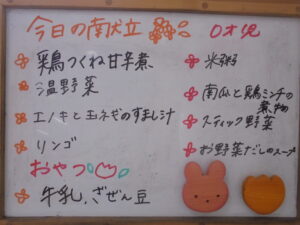 今日の献立
0才児
鶏つくね甘辛煮
温野菜
エノキと玉ネギのすまし汁
リンゴ
おやつ
牛乳、ぎぜん豆
米粥
南瓜と鶏ミンチの
煮物
スティック野菜
お野菜だしのスープ